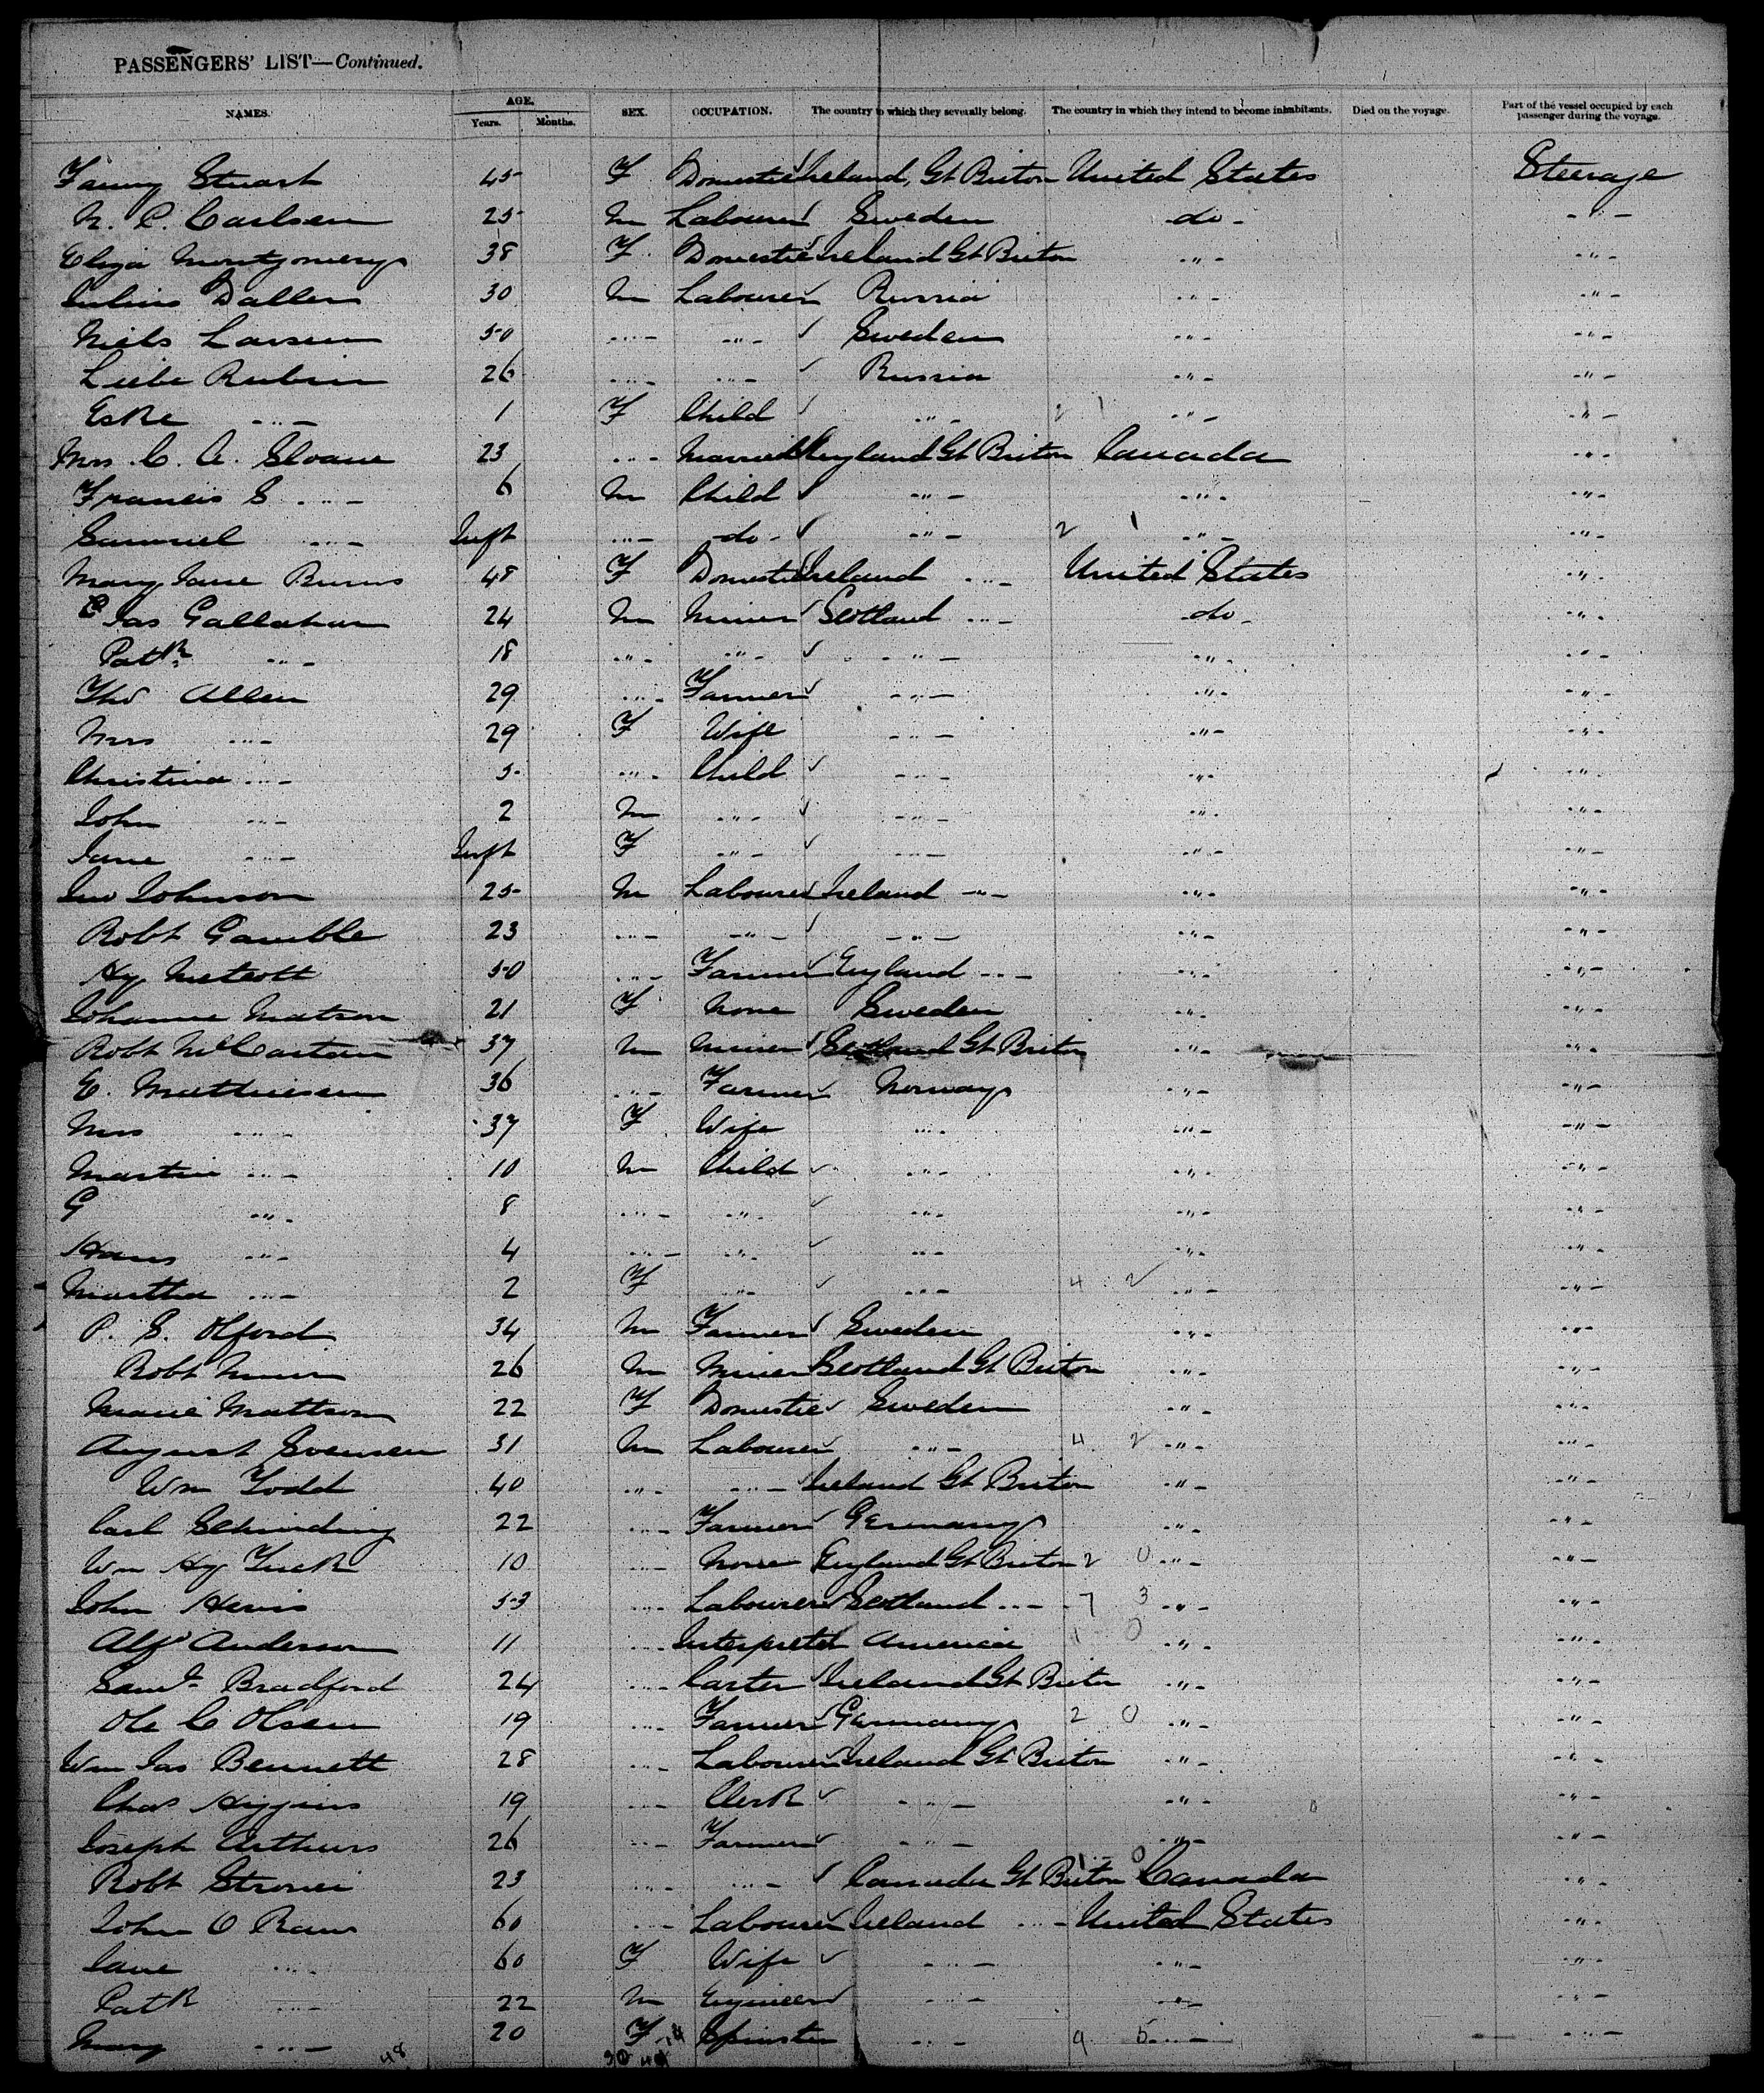 PASSENGERS' LIST—Continued.
NAMES. AGE. Years. Months. SEX. OCCUPATION. The country to which they severally belong. The country in which they intend to become inhabitants. Died on the voyage. Part of the vessel occupied by each passenger during the voyage.
Fanny Stuart 45 F Domestic Ireland, Gt Briton United States Steerage
N. P. Carlsen 25 M Labourer Sweden do "
Eliza Montgomery 38 F Domestic Ireland Gt Briton " "
Julius Daller 30 M Labourer Russia " "
Niels Larsen 50 " " Sweden " "
Liebe Rubin 26 " " Russia " "
Eske " 1 F Child " 2 1 " "
Mrs. C. A. Sloane 23 " Married England Gt Briton Canada "
Francis S " 6 M Child " " "
Samuel " Inft " do " 2 1 " "
Mary Jane Burns 48 F Domestic Ireland " United States "
Jas Gallahan 24 M Miner Scotland " do "
Patk " 18 " " " " "
Tho Allen 29 " Farmer " " "
Mrs " 29 F Wife " " "
Christina " 5 " Child " " "
John " 2 M " " " "
Jane " Inft F " " " "
Jno Johnson 25 M Labourer Ireland " " "
Robt Gamble 23 " " " " "
Hy 50 " Farmer England " " "
Johanne Matson 21 F None Sweden " "
Robt McCartan 37 M Miner Scotland Gt Briton " "
E. Mathiesen 36 " Farmer Norway " "
Mrs " 37 F Wife " " "
Martin " 10 M Child " " "
G " 8 " " " " "
Hans " 4 " " " " "
Martha " 2 F " " 4 2 " "
P. S. Olford 34 M Farmer Sweden " "
Robt 26 M Miner Scotland Gt Briton " "
Marie Mattson 22 F Domestic Sweden " "
August Svensen 31 M Labourer " 4 2 " "
Wm Todd 40 " " Ireland Gt Briton " "
Carl Schinding 22 " Farmer Germany " "
Wm Hy Tuck 10 " None England Gt Briton 2 0 " "
John Hervis 53 " Labourer Scotland " 7 3 " "
Alf Anderson 11 " Interpreter America 1 0 " "
Saml Bradford 24 " Carter Ireland Gt Briton " "
Ole C Olsen 19 " Farmer Germany 2 0 " "
Wm Jas Bennett 28 " Labourer Ireland Gt Briton " "
Chas Higgins 19 " Clerk " " "
Joseph Arthurs 26 " Farmer " " "
Robt 23 " " Canada Gt Briton 1 0 Canada "
John O 60 " Labourer Ireland " United States "
Jane " 60 F Wife " " "
Patk " 22 M Engineer " " "
Mary " 20 F Spinster " 9 5 " "
48